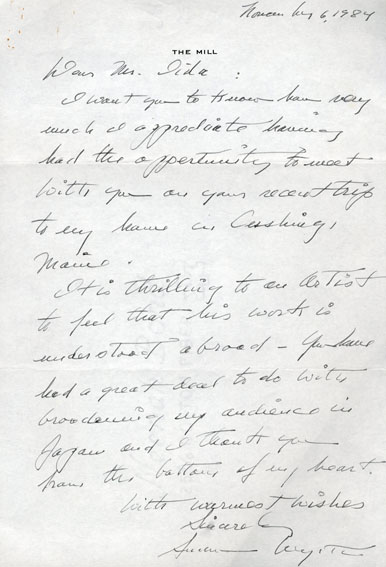 November 6, 1984
THE MILL
Dear Mr. Iida:
I want you to know how very
much I appreciate having
had the opportunity to meet
with you on your recent trip
to my home in Cushing,
Maine.
It is thrilling to an Artist
to feel that his work is
understood abroad – You have
had a great deal to do with
broadening my audience in
Japan and I thank you
from the bottom of my heart.
With warmest wishes
Sincerely
Wyeth